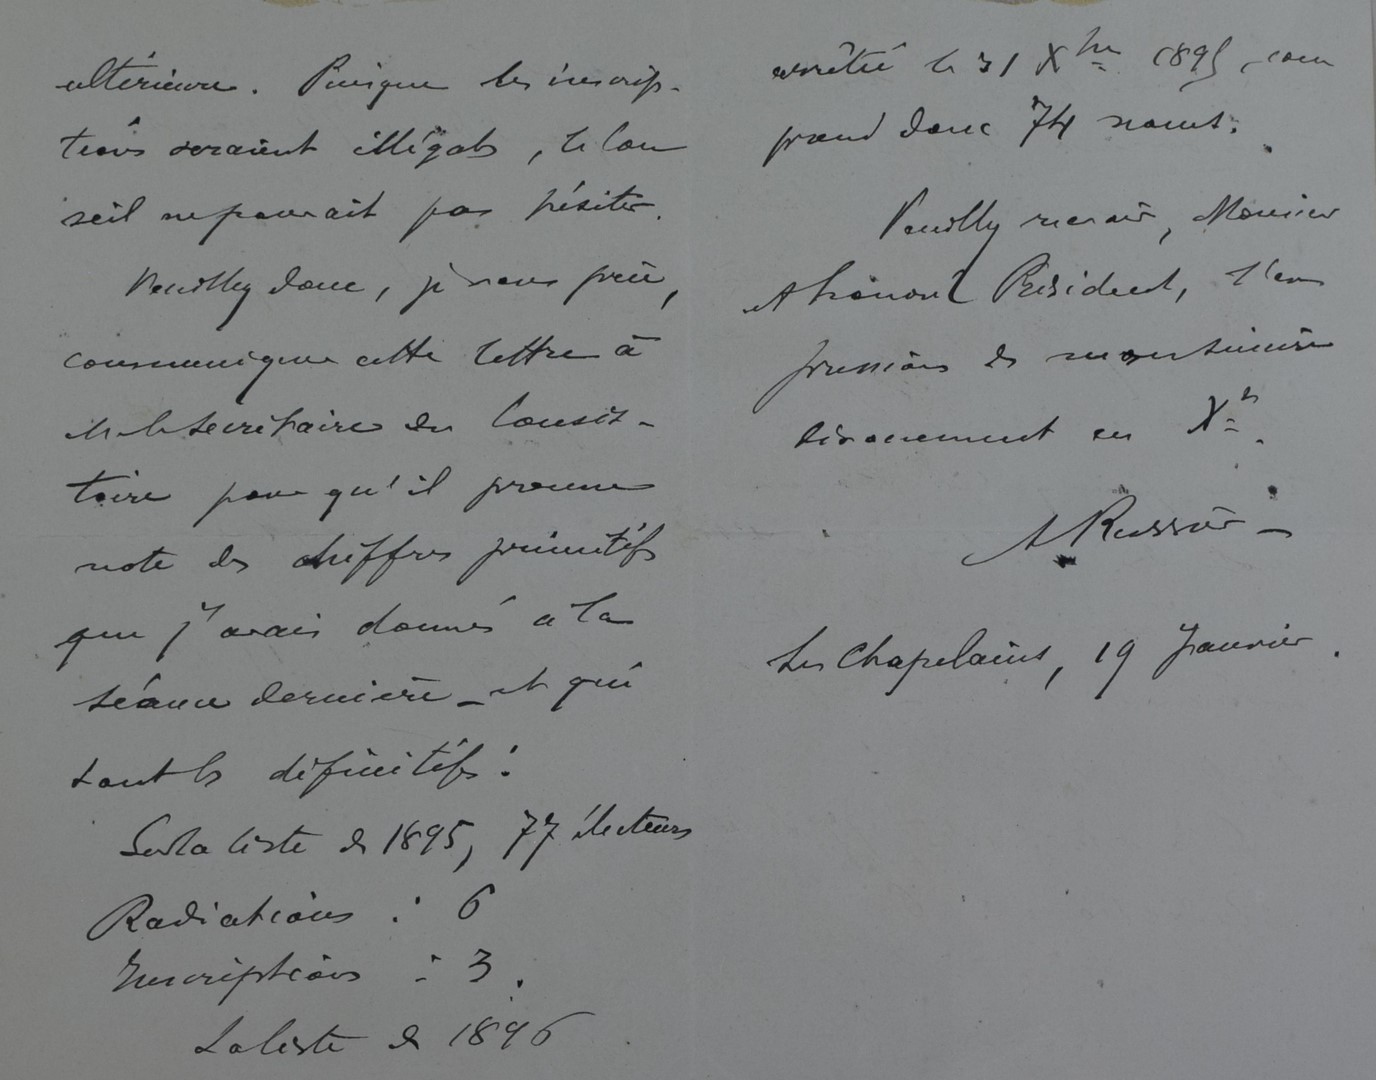 ultérieure. Puisque les inscrip-
tions seraient illégales, le Con
seil ne pourrait pas hésiter.
Veuillez donc, je vous prie,
communiquer cette lettre à
M. le Secrétaire du Consis-
toire pour qu'il prenne
note des chiffres primitifs
que j'avais donnés à la
séance dernière - et qui
sont les définitifs :
Sur la liste de 1895, 77 électeurs
Radiations : 6
Inscriptions : 3.
La liste de 1896
arrêtée le 31 Xbre 1895, com
prend donc 74 noms.
Veuillez recevoir, Monsieur
& honoré Président, l'ex
pression de mon sincère
dévouement en Xt.
A Russier -
Les Chapelains, 19 Janvier.